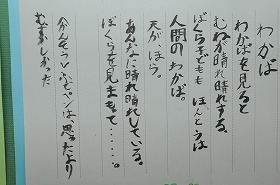 わかば
わかばを見ると
むねが晴れ晴れする。
ぼくら子どもも ほんとうは
人間のわかば。
天が、ほら。
あんなに晴れ晴れしている。
ぼくらを見まもって・・・・・。
(かんそう)ふでペンは、思ったより
むずかしかった